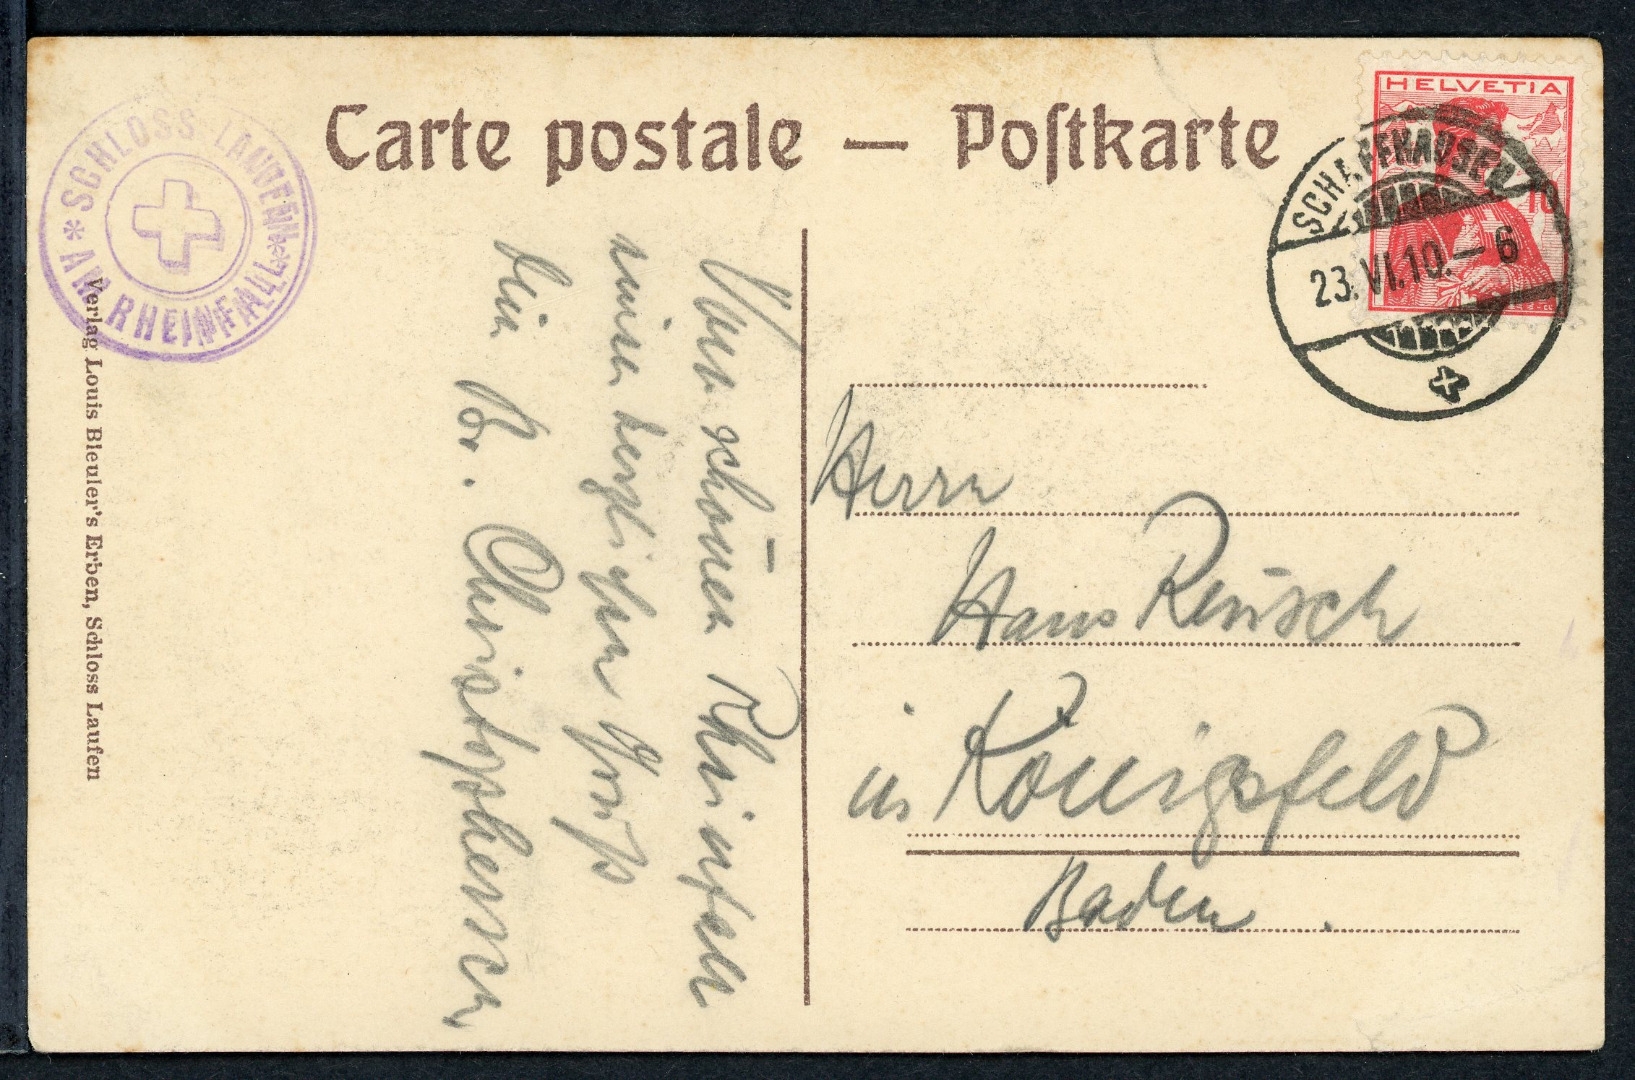 Carte postale — Postkarte
SCHLOSS LAUFEN
* AM RHEINFALL *
Verlag Louis Bleuler's Erben, Schloss Laufen
HELVETIA
10
SCHAFFHAUSEN
23. VI. 10. — 6
Vom schönen Rheinfall
einen herzlichen Gruß
Dein Br.
Herrn
Hans Reusch
in Königsfeld
Baden.